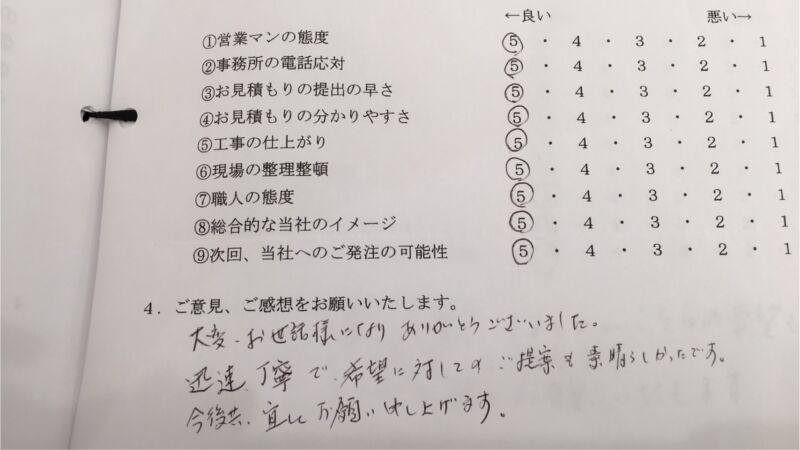 ←良い 悪い→
①営業マンの態度 5 ・ 4 ・ 3 ・ 2 ・ 1
②事務所の電話応対 5 ・ 4 ・ 3 ・ 2 ・ 1
③お見積もりの提出の早さ 5 ・ 4 ・ 3 ・ 2 ・ 1
④お見積もりの分かりやすさ 5 ・ 4 ・ 3 ・ 2 ・ 1
⑤工事の仕上がり 5 ・ 4 ・ 3 ・ 2 ・ 1
⑥現場の整理整頓 5 ・ 4 ・ 3 ・ 2 ・ 1
⑦職人の態度 5 ・ 4 ・ 3 ・ 2 ・ 1
⑧総合的な当社のイメージ 5 ・ 4 ・ 3 ・ 2 ・ 1
⑨次回、当社へのご発注の可能性 5 ・ 4 ・ 3 ・ 2 ・ 1
4．ご意見、ご感想をお願いいたします。
大変、お世話様になり ありがとうございました。
迅速、丁寧で、希望に対してのご提案も素晴らしかったです。
今後共、宜しくお願い申し上げます。